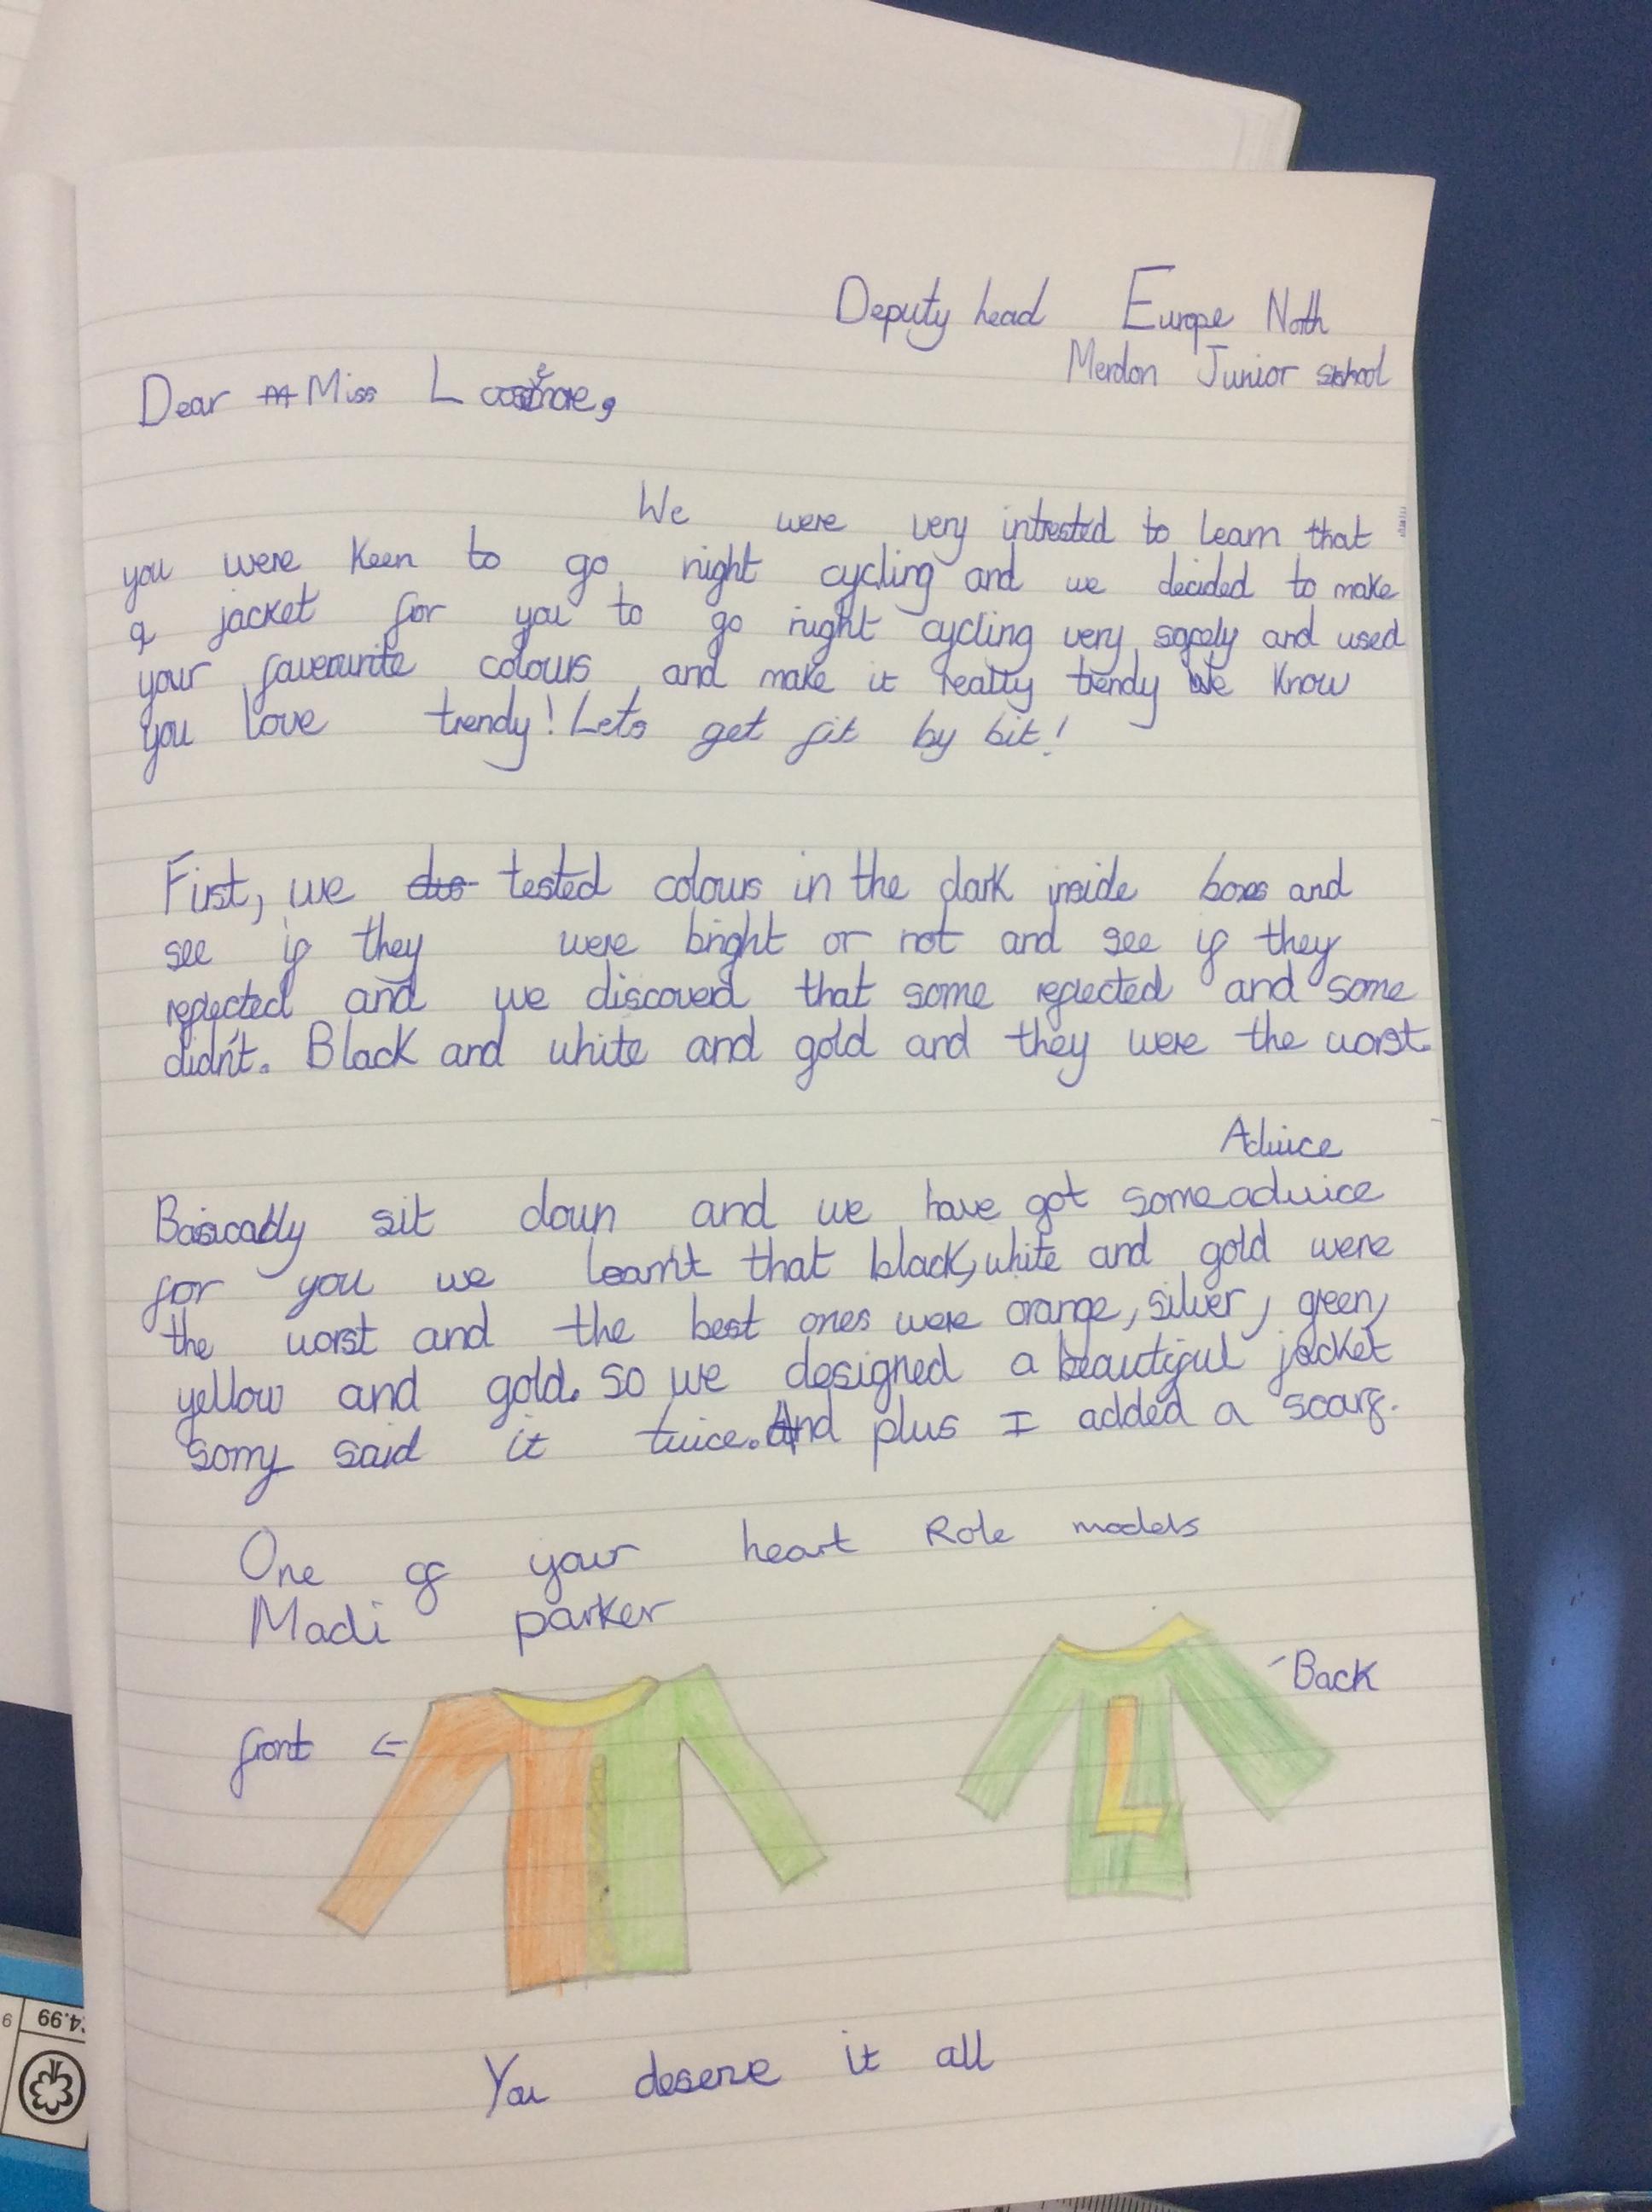 Deputy head Europe North
Merdon Junior school
Dear Miss
We were very intrested to learn that
you were keen to go night cycling and we decided to make
a jacket for you to go night cycling very safely and used
your faverourite colours and make it really trendy We know
you love trendy! Lets get fit by bit!
First, we tested colours in the dark inside boxes and
see if they were bright or not and see if they
reflected and we discoverd that some reflected and some
didn't. Black and white and gold and they were the worst.
Advice
Basically sit down and we have got some advice
for you we learnt that black, white and gold were
the worst and the best ones were orange, silver, green,
yellow and gold. so we designed a beautiful jacket
sorry said it twice. And plus I added a scarf.
One of your heart Role models
Madi parker
Back
front
L
You deserve it all
4.99
9